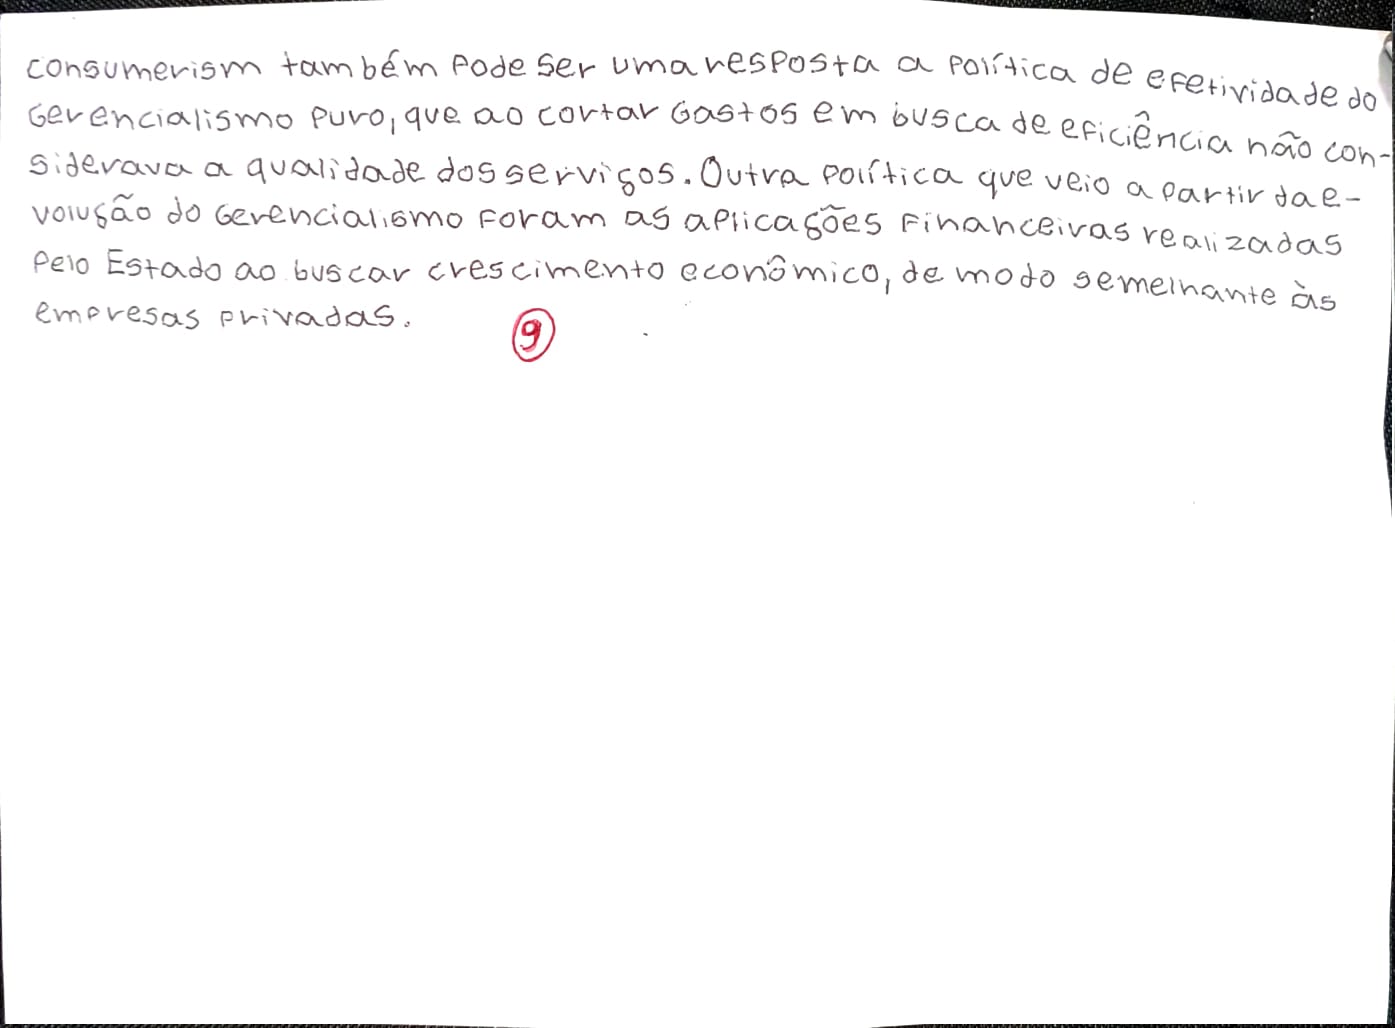 consumerism também pode ser uma resposta a política de efetividade do
Gerencialismo puro, que ao cortar gastos em busca de eficiência não con-
siderava a qualidade dos serviços. Outra política que veio a partir da e-
volução do Gerencialismo foram as aplicações financeiras realizadas
pelo Estado ao buscar crescimento econômico, de modo semelhante às
empresas privadas.
9